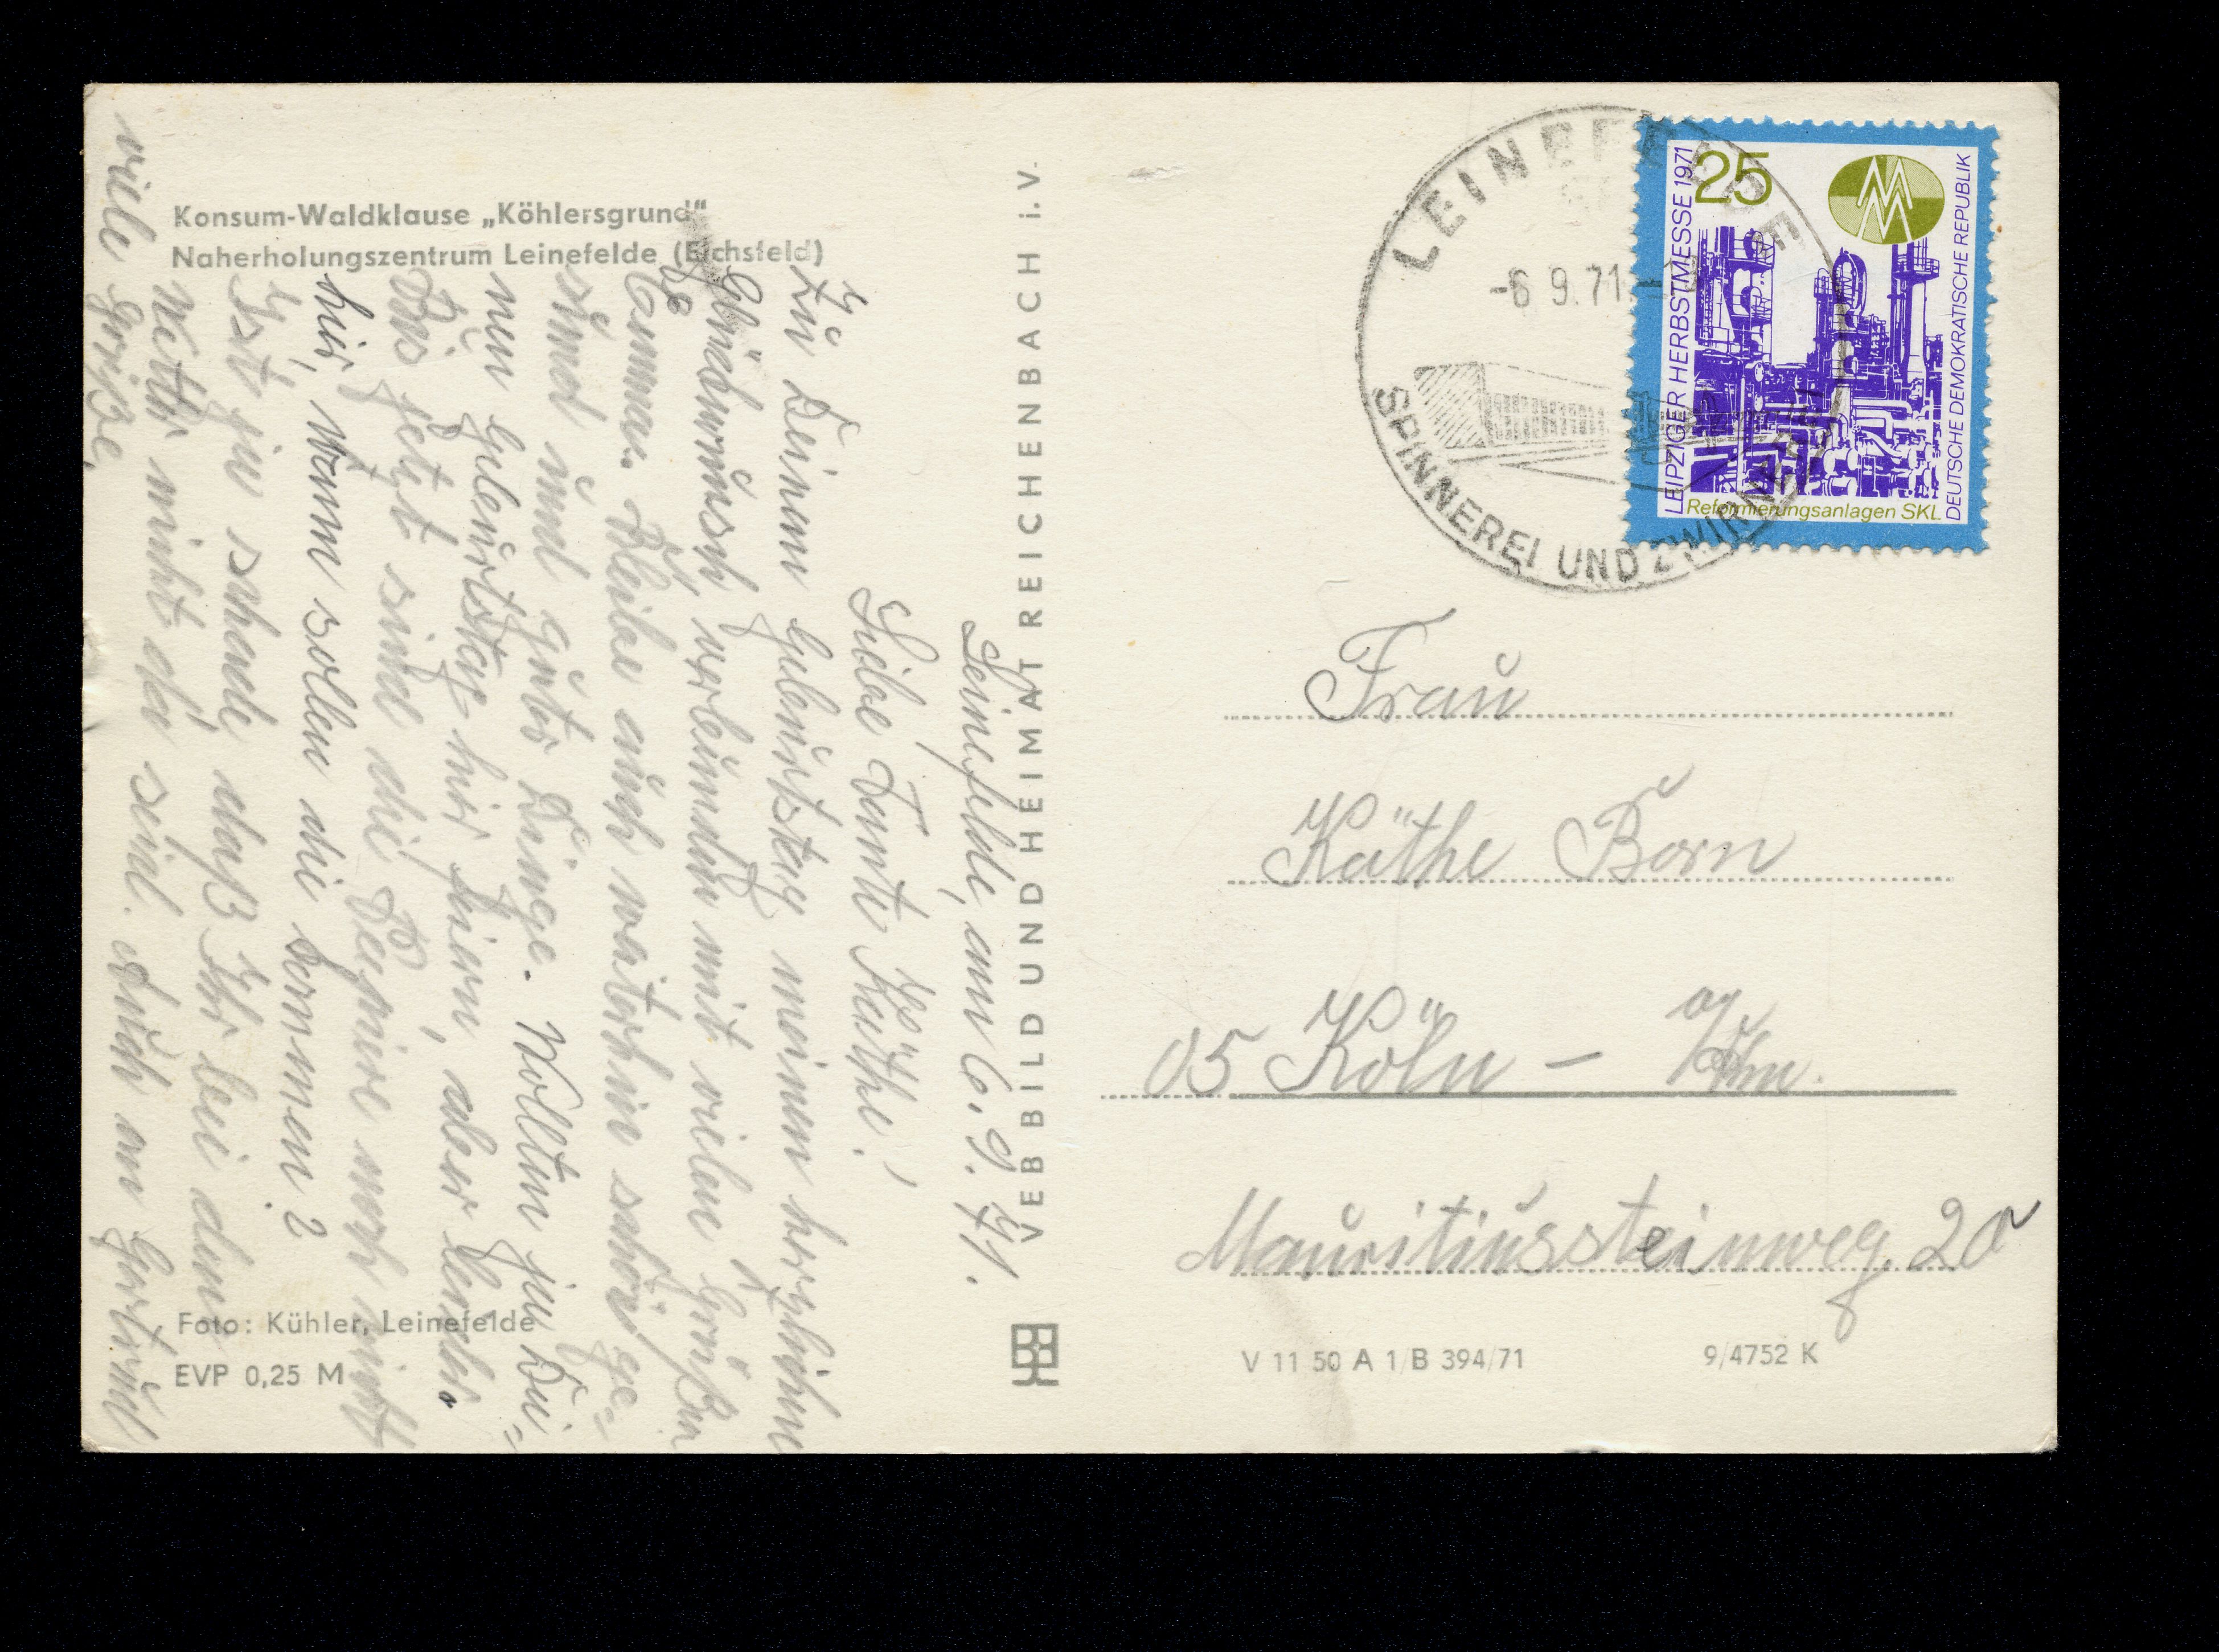 Konsum-Waldklause „Köhlersgrund"
Naherholungszentrum Leinefelde (Eichsfeld)
Leinefelde, am 6.9.71.
Liebe Tante Käthe!
Zu Deinem Geburtstag meinen herzlichen
Glückwunsch, verbunden mit vielen Grüßen
Bleibe auch weiterhin schön ge=
sund und guter Dinge. Wollten ja Dei=
nen Geburtstag hier feiern, aber leider.
Bis jetzt sind die Papiere noch nicht
hier, wann sollen die kommen?
Ist ja schade, daß Ihr bei dem
Wetter nicht da seid. Auch an Gertrud
viele Grüße,
Foto: Kühler, Leinefelde
EVP 0,25 M
VEB BILD UND HEIMAT REICHENBACH i. V.
LEINEFELDE
-6.9.71.-
SPINNEREI UND ZWIRNEREI
25
LEIPZIGER HERBSTMESSE 1971
DEUTSCHE DEMOKRATISCHE REPUBLIK
Reformierungsanlagen SKL
Frau
Käthe Born
05 Köln - a/Rhn.
Mauritiussteinweg 20
V 11 50 A 1/B 394/71
9/4752 K